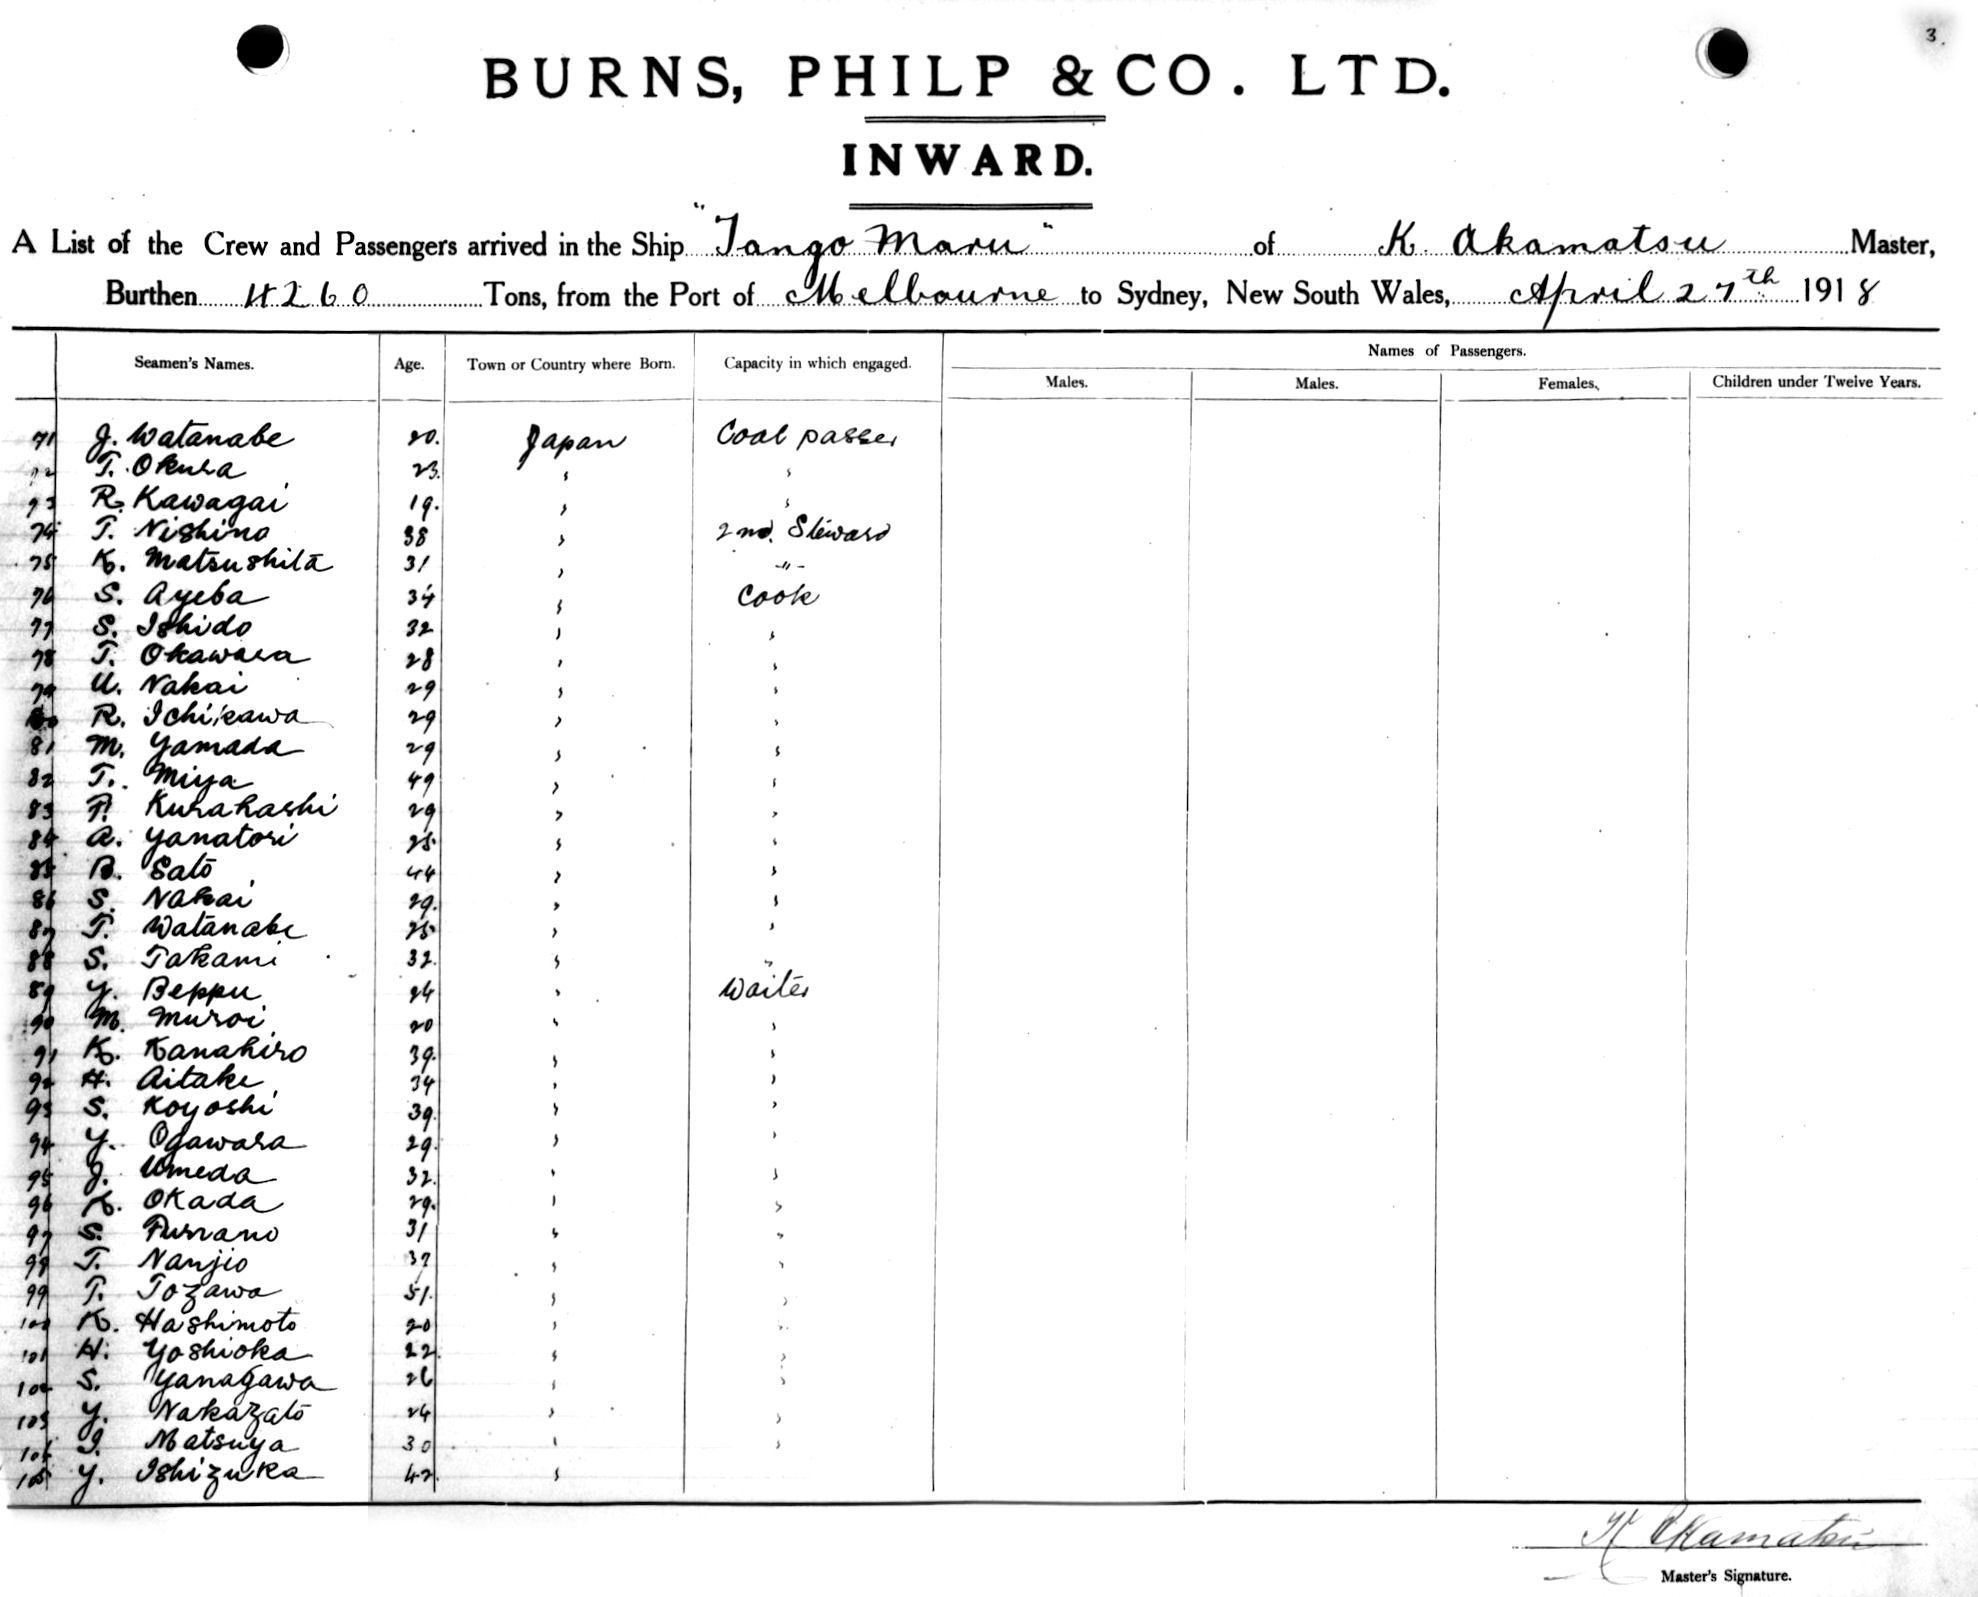 3.
BURNS, PHILP & CO. LTD.
INWARD.
A List of the Crew and Passengers arrived in the Ship "Tango Maru" of K. Akamatsu Master,
Burthen 4260 Tons, from the Port of Melbourne to Sydney, New South Wales, April 27th 1918
Names of Passengers.
Seamen's Names. Age. Town or Country where Born. Capacity in which engaged. Males. Males. Females. Children under Twelve Years.
71 J. Watanabe 20. Japan Coal passer
72 T. Okura 23. " "
73 R. Kawagai 19. " "
74 T. Nishino 38 " 2nd. Steward
75 K. Matsushita 31 " -"-
76 S. Ayeba 34 " Cook
77 S. Ishido 32 " "
78 T. Okawara 28 " "
79 U. Nakai 29 " "
80 R. Ichikawa 29 " "
81 M. Yamada 29 " "
82 T. Miya 49 " "
83 T. Kurahashi 29 " "
84 A. Yanatori 25 " "
85 B. Sato 44 " "
86 S. Nakai 29. " "
87 T. Watanabe 25 " "
88 S. Takami 32. " "
89 Y. Beppu 24 " Waiter
90 M. Muroi 20 " "
91 K. Kanahiro 39. " "
92 H. Aitake 34 " "
93 S. Koyoshi 39. " "
94 Y. Ogawara 29. " "
95 J. Umeda 32. " "
96 K. Okada 29. " "
97 S. 31 " "
98 T. Nanjio " "
99 T. Tozawa 51. " "
100 K. Hashimoto 20 " "
101 H. Yoshioka 22. " "
102 S. Yanagawa 26 " "
103 Y. Nakazato 24 " "
104 I. Matsuya 30 " "
105 Y. Ishizuka 42. "
K Akamatsu
Master's Signature.